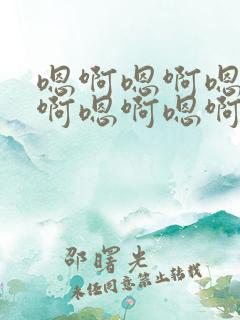 嗯啊嗯啊嗯
啊嗯啊嗯啊
邵曙光
未经同意禁止转载